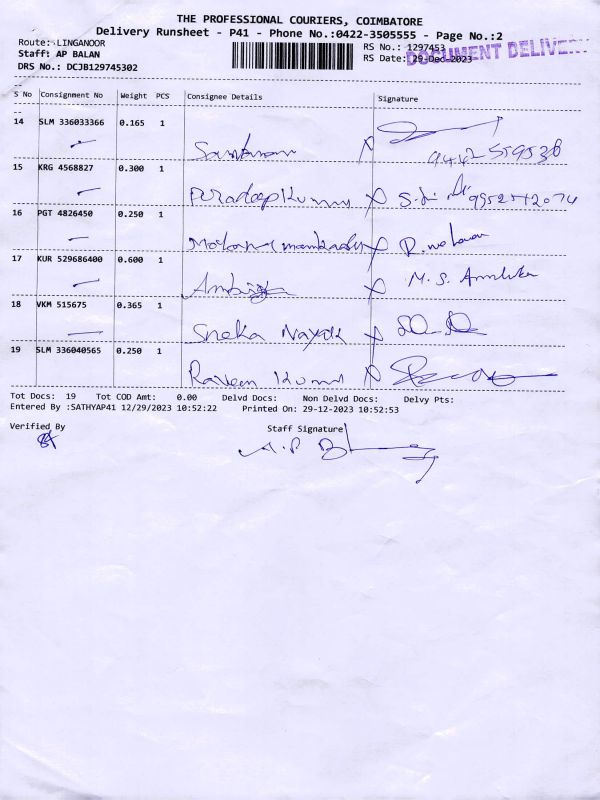 THE PROFESSIONAL COURIERS, COIMBATORE
Delivery Runsheet - P41 - Phone No.:0422-3505555 - Page No.:2
Route: LINGANOOR
RS No.: 1297453
DOCUMENT DELIVE
Staff: AP BALAN
RS Date: 29-Dec-2023
DRS No.: DCJB129745302
S No Consignment No Weight PCS Consignee Details Signature
14 SLM 336033366 0.165 1
9442559536
15 KRG 4568827 0.300 1
Pradeep Kumar X
16 PGT 4826450 0.250 1
X R. Mohan
17 KUR 529686400 0.600 1
X M. S.
18 VKM 515675 0.365 1
Sneka Nayak X
19 SLM 336040565 0.250 1
Raveen Kumar X
Tot Docs: 19 Tot COD Amt: 0.00 Delvd Docs: Non Delvd Docs: Delvy Pts:
Entered By :SATHYAP41 12/29/2023 10:52:22 Printed On: 29-12-2023 10:52:53
Verified By Staff Signature
A.P